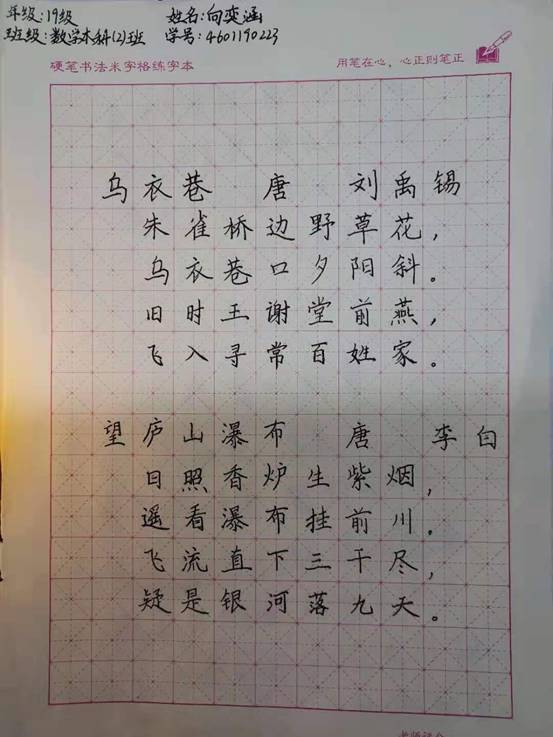 年级:19级 姓名:向奕涵
班级:数学本科(2)班 学号:4601190223
硬笔书法米字格练字本 用笔在心，心正则笔正
乌衣巷 唐 刘禹锡
朱雀桥边野草花，
乌衣巷口夕阳斜。
旧时王谢堂前燕，
飞入寻常百姓家。
望庐山瀑布 唐 李白
日照香炉生紫烟，
遥看瀑布挂前川。
飞流直下三千尽，
疑是银河落九天。